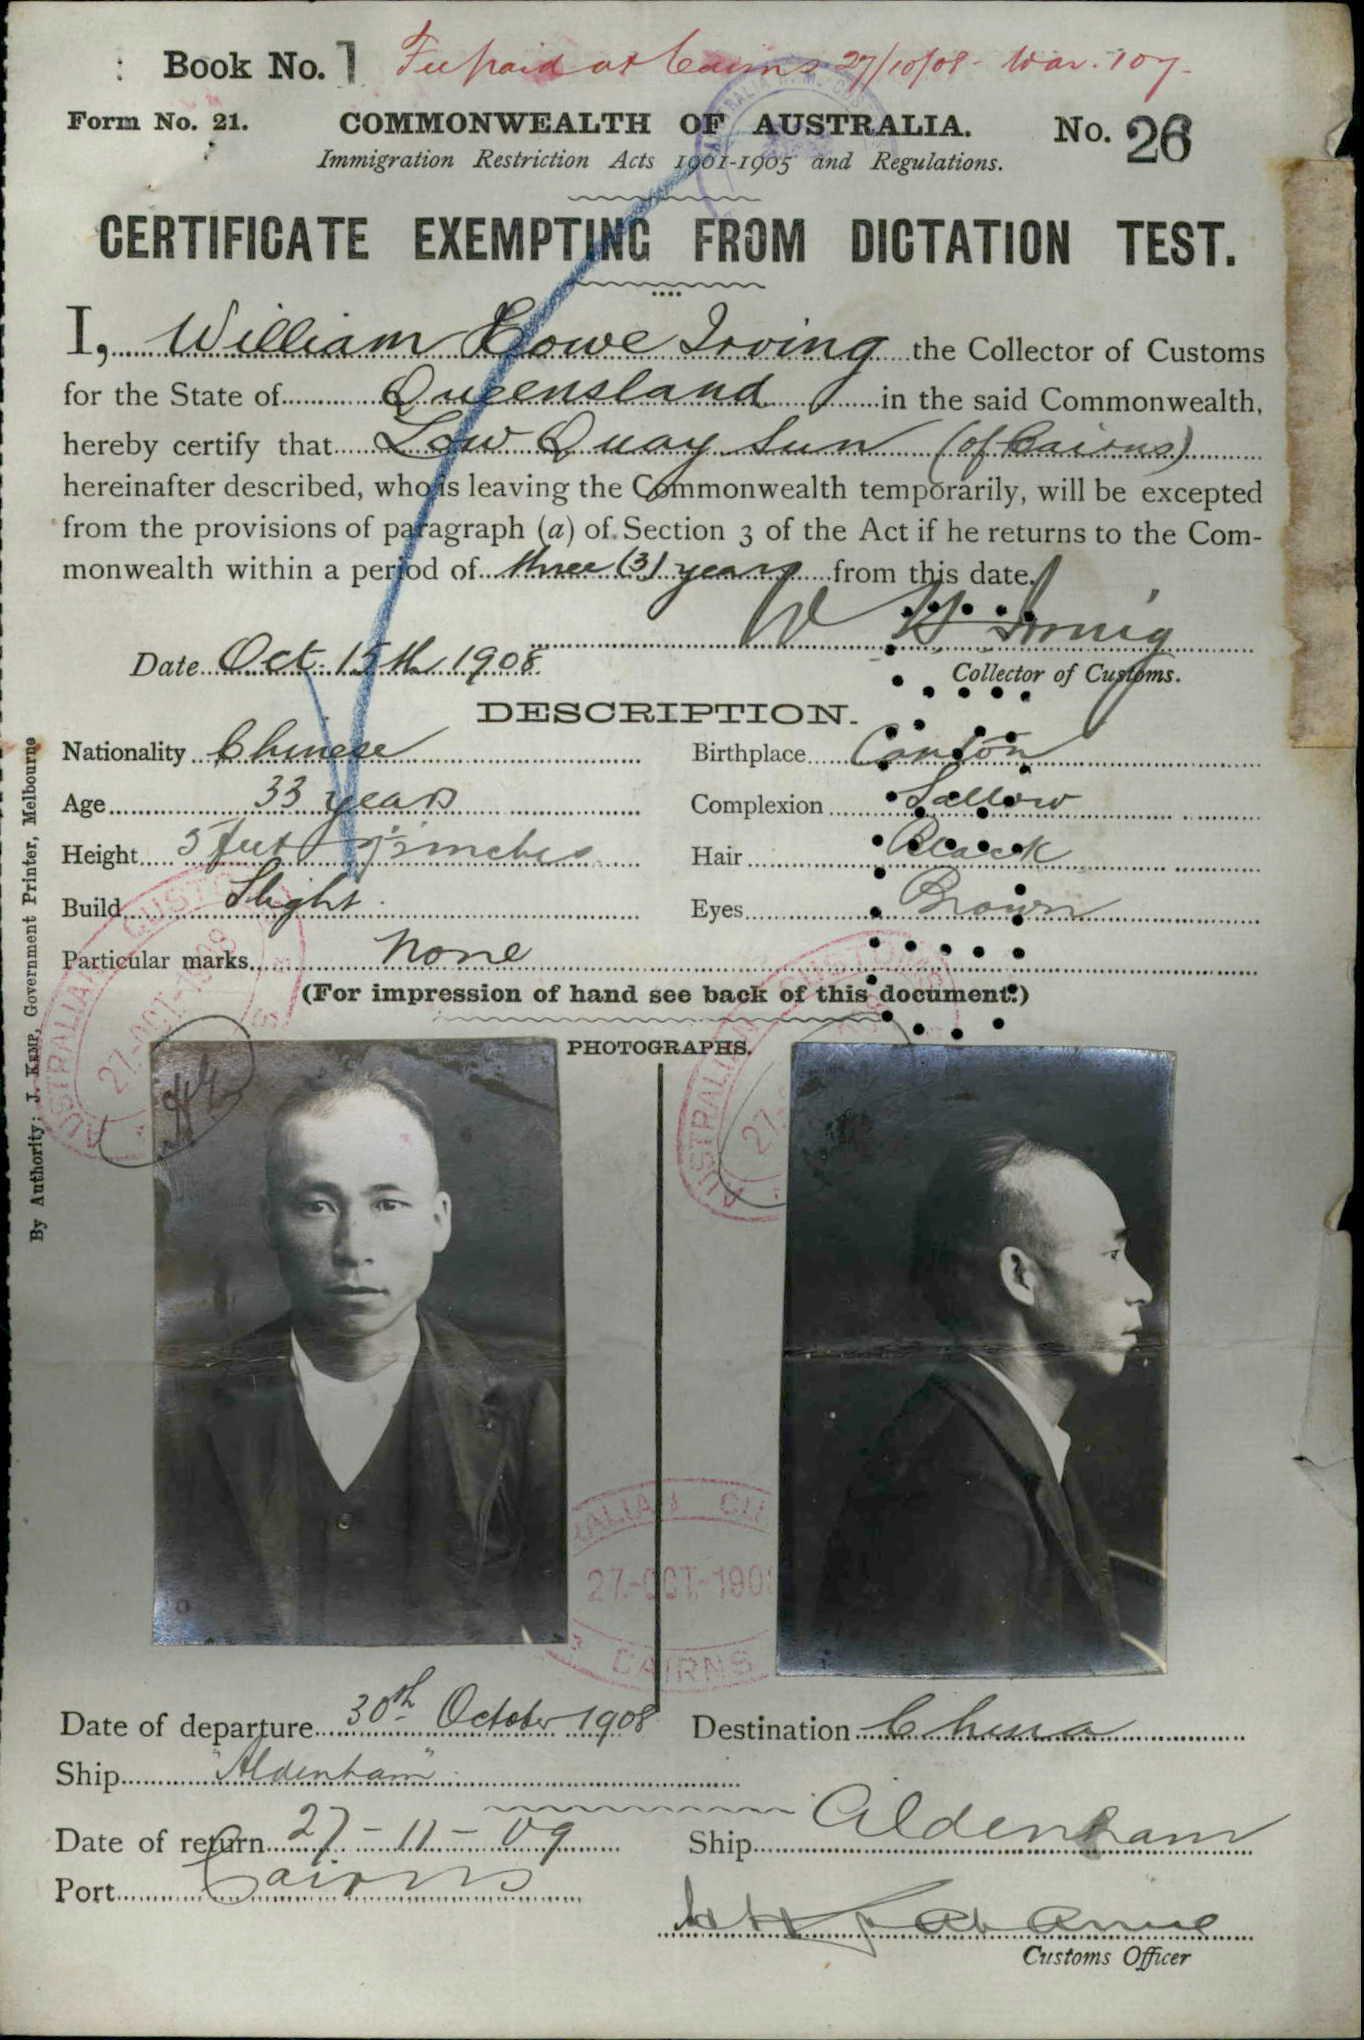 Book No. 1 Fee paid at Cairns 27/10/08 - War. 107.
Form No. 21. COMMONWEALTH OF AUSTRALIA. No. 26
Immigration Restriction Acts 1901-1905 and Regulations.
CERTIFICATE EXEMPTING FROM DICTATION TEST.
I, William Howe Irving the Collector of Customs
for the State of Queensland in the said Commonwealth,
hereby certify that Low Quay Sun (of Cairns)
hereinafter described, who is leaving the Commonwealth temporarily, will be excepted
from the provisions of paragraph (a) of Section 3 of the Act if he returns to the Com-
monwealth within a period of three (3) years from this date.
W H Irving
Date Oct. 15th 1908
Collector of Customs.
DESCRIPTION.
Nationality Chinese Birthplace Canton
Age 33 years Complexion Sallow
Height 5 feet inches Hair Black
Build Slight Eyes Brown
Particular marks None
(For impression of hand see back of this document.)
PHOTOGRAPHS.
By Authority: J. KEMP, Government Printer, Melbourne
AUSTRALIAN CUSTOMS
27-OCT-1908
AUSTRALIAN CUSTOMS
27
RALIAN CU
27-OCT-190
CAIRNS
Date of departure 30th October 1908 Destination China
Ship "Aldenham"
Date of return 27-11-09 Ship Aldenham
Port Cairns
Customs Officer